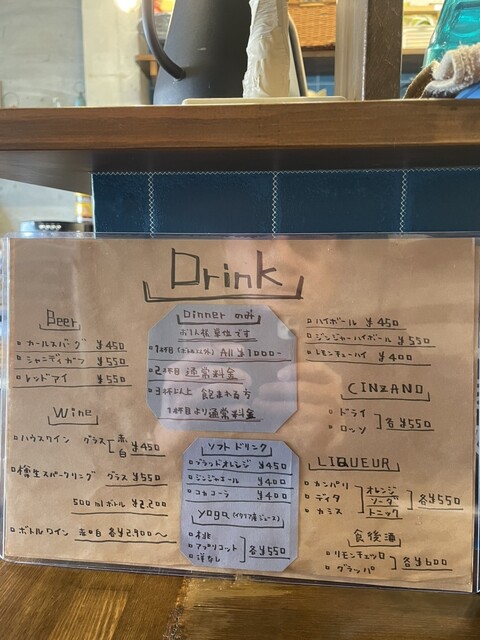 Drink
Beer
カールスバーグ ¥450
シャンディガフ ¥550
レッドアイ ¥550
Wine
ハウスワイン グラス 赤 白 ¥450
樽生スパークリング グラス ¥550
500mlボトル ¥2,200
ボトルワイン 赤白 各¥2,900〜
Dinner のみ
お1人様単位です
1杯目 All ¥1000-
2杯目 通常料金
3杯以上 飲まれる方
1杯目より通常料金
ソフトドリンク
ブラッドオレンジ ¥450
ジンジャエール ¥400
コカコーラ ¥400
yoga (イタリア産ジュース)
桃
アプリコット
洋なし
各¥550
ハイボール ¥450
ジンジャーハイボール ¥550
レモンチューハイ ¥400
CINZANO
ドライ
ロッソ
各¥550
LIQUEUR
カンパリ
ディタ
カシス
オレンジ
ソーダ
トニック
各¥550
食後酒
リモンチェッロ
グラッパ
各¥600